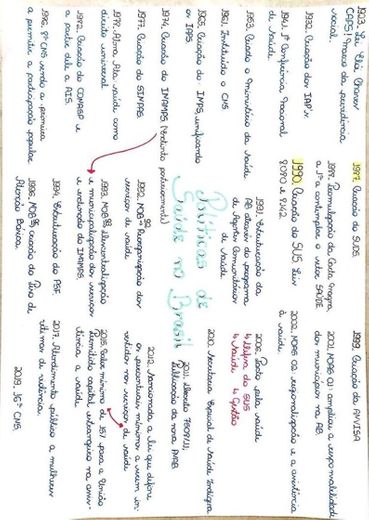 1923. Lei Elói Chaves
CAPS! Marco da previdência
social.
1932. Criação dos IAP's
1941. 1ª Conferência Nacional
de Saúde
1953. Criado o ministério da Saúde
1961. Instituído o CNS
1965. Criação do INPS unificando
os IAPS
1974. Criação do INAMPS (extinto posteriormente)
1977. Criação do SIMPAS
1978. Alma Ata saúde como
direito universal
1982. Criação do CONASP e
a partir dele a AIS.
1986. 8ª CNS sendo a primeira
a permitir a participação popular
1987. Criação do SUDS.
1988. Formulação da Carta Magna
a 1ª a contemplar o setor SAÚDE
1990. Criação do SUS Leis
8080 e 8142.
1991. Estruturação da
AB através do programa
de Agentes Comunitários
de Saúde
Políticas de
Saúde no Brasil
1992. NOB 92 Reorganização dos
serviços de saúde
1993. NOB 93 descentralização
e municipalização dos serviços
e extinção do INAMPS.
1994. Estruturação do PSF.
1996. NOB 96 criação do Piso de
Atenção Básica.
1999. Criação da ANVISA
2001. NOAS 01: ampliou a responsabilidade
dos municípios na AB.
2002. NOAS 02 regionalização e a assistência
à saúde.
2006. Pacto pela saúde
↳ Defesa do SUS
↳ Saúde ↳ Gestão
2010. Secretaria Especial de Saúde Indígena
2011. Decreto 7508/11;
Publicação da nova PNAB
2012. Sancionada a lei que define
os percentuais mínimos a serem in-
vestidos nos serviços de saúde
2015. Valor mínimo de 15% para a União
Permitido capital estrangeiro na assis-
tência a saúde
2017. Atendimento público a mulheres
vítimas de violência.
2019. 16ª CNS.